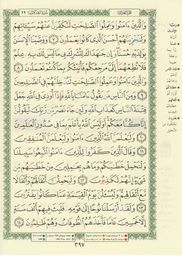 وَالَّذِينَ آمَنُوا وَعَمِلُوا الصَّالِحَاتِ لَنُكَفِّرَنَّ عَنْهُمْ سَيِّئَاتِهِمْ
وَلَنَجْزِيَنَّهُمْ أَحْسَنَ الَّذِي كَانُوا يَعْمَلُونَ ٧ وَوَصَّيْنَا الْإِنسَانَ
بِوَالِدَيْهِ حُسْنًا وَإِن جَاهَدَاكَ لِتُشْرِكَ بِي مَا لَيْسَ لَكَ بِهِ عِلْمٌ
فَلَا تُطِعْهُمَا إِلَيَّ مَرْجِعُكُمْ فَأُنَبِّئُكُم بِمَا كُنتُمْ تَعْمَلُونَ ٨
وَالَّذِينَ آمَنُوا وَعَمِلُوا الصَّالِحَاتِ لَنُدْخِلَنَّهُمْ فِي الصَّالِحِينَ ٩
وَمِنَ النَّاسِ مَن يَقُولُ آمَنَّا بِاللَّهِ فَإِذَا أُوذِيَ فِي اللَّهِ جَعَلَ فِتْنَةَ
النَّاسِ كَعَذَابِ اللَّهِ وَلَئِن جَاءَ نَصْرٌ مِّن رَّبِّكَ لَيَقُولُنَّ
إِنَّا كُنَّا مَعَكُمْ أَوَلَيْسَ اللَّهُ بِأَعْلَمَ بِمَا فِي صُدُورِ الْعَالَمِينَ
١٠ وَلَيَعْلَمَنَّ اللَّهُ الَّذِينَ آمَنُوا وَلَيَعْلَمَنَّ الْمُنَافِقِينَ
١١ وَقَالَ الَّذِينَ كَفَرُوا لِلَّذِينَ آمَنُوا اتَّبِعُوا سَبِيلَنَا
وَلْنَحْمِلْ خَطَايَاكُمْ وَمَا هُم بِحَامِلِينَ مِنْ خَطَايَاهُم
مِّن شَيْءٍ إِنَّهُمْ لَكَاذِبُونَ ١٢ وَلَيَحْمِلُنَّ أَثْقَالَهُمْ وَأَثْقَالًا
مَّعَ أَثْقَالِهِمْ وَلَيُسْأَلُنَّ يَوْمَ الْقِيَامَةِ عَمَّا كَانُوا يَفْتَرُونَ
١٣ وَلَقَدْ أَرْسَلْنَا نُوحًا إِلَىٰ قَوْمِهِ فَلَبِثَ فِيهِمْ أَلْفَ سَنَةٍ
إِلَّا خَمْسِينَ عَامًا فَأَخَذَهُمُ الطُّوفَانُ وَهُمْ ظَالِمُونَ ١٤
٣٩٧